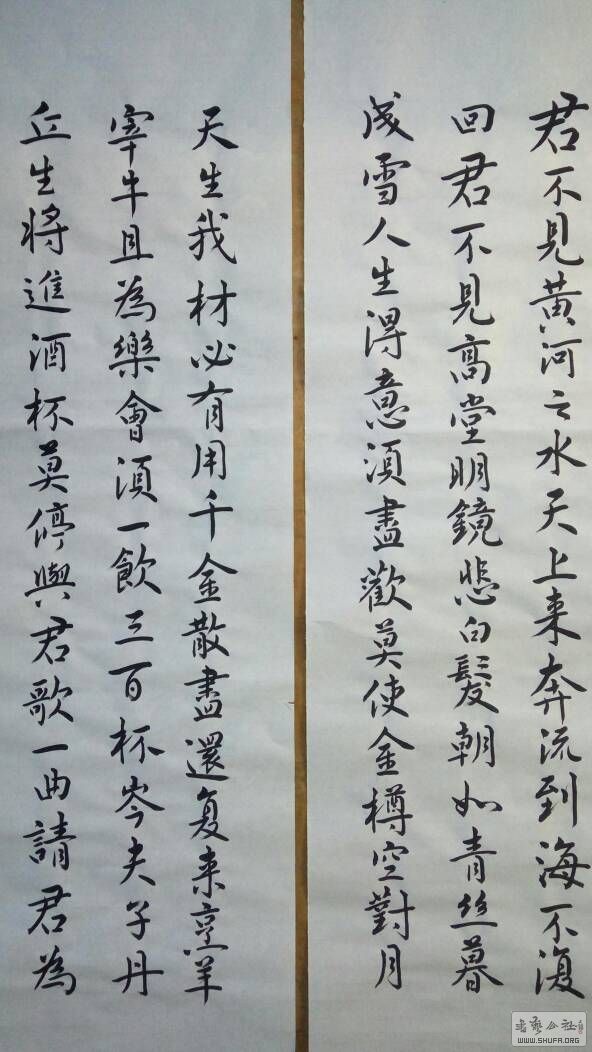 君不見黄河之水天上来奔流到海不復
回君不見高堂明鏡悲白髮朝如青丝暮
成雪人生得意須盡歡莫使金樽空對月
天生我材必有用千金散盡還复来烹羊
宰牛且為樂會須一飲三百杯岑夫子丹
丘生將進酒杯莫停與君歌一曲請君為
WWW.SHUFA.ORG